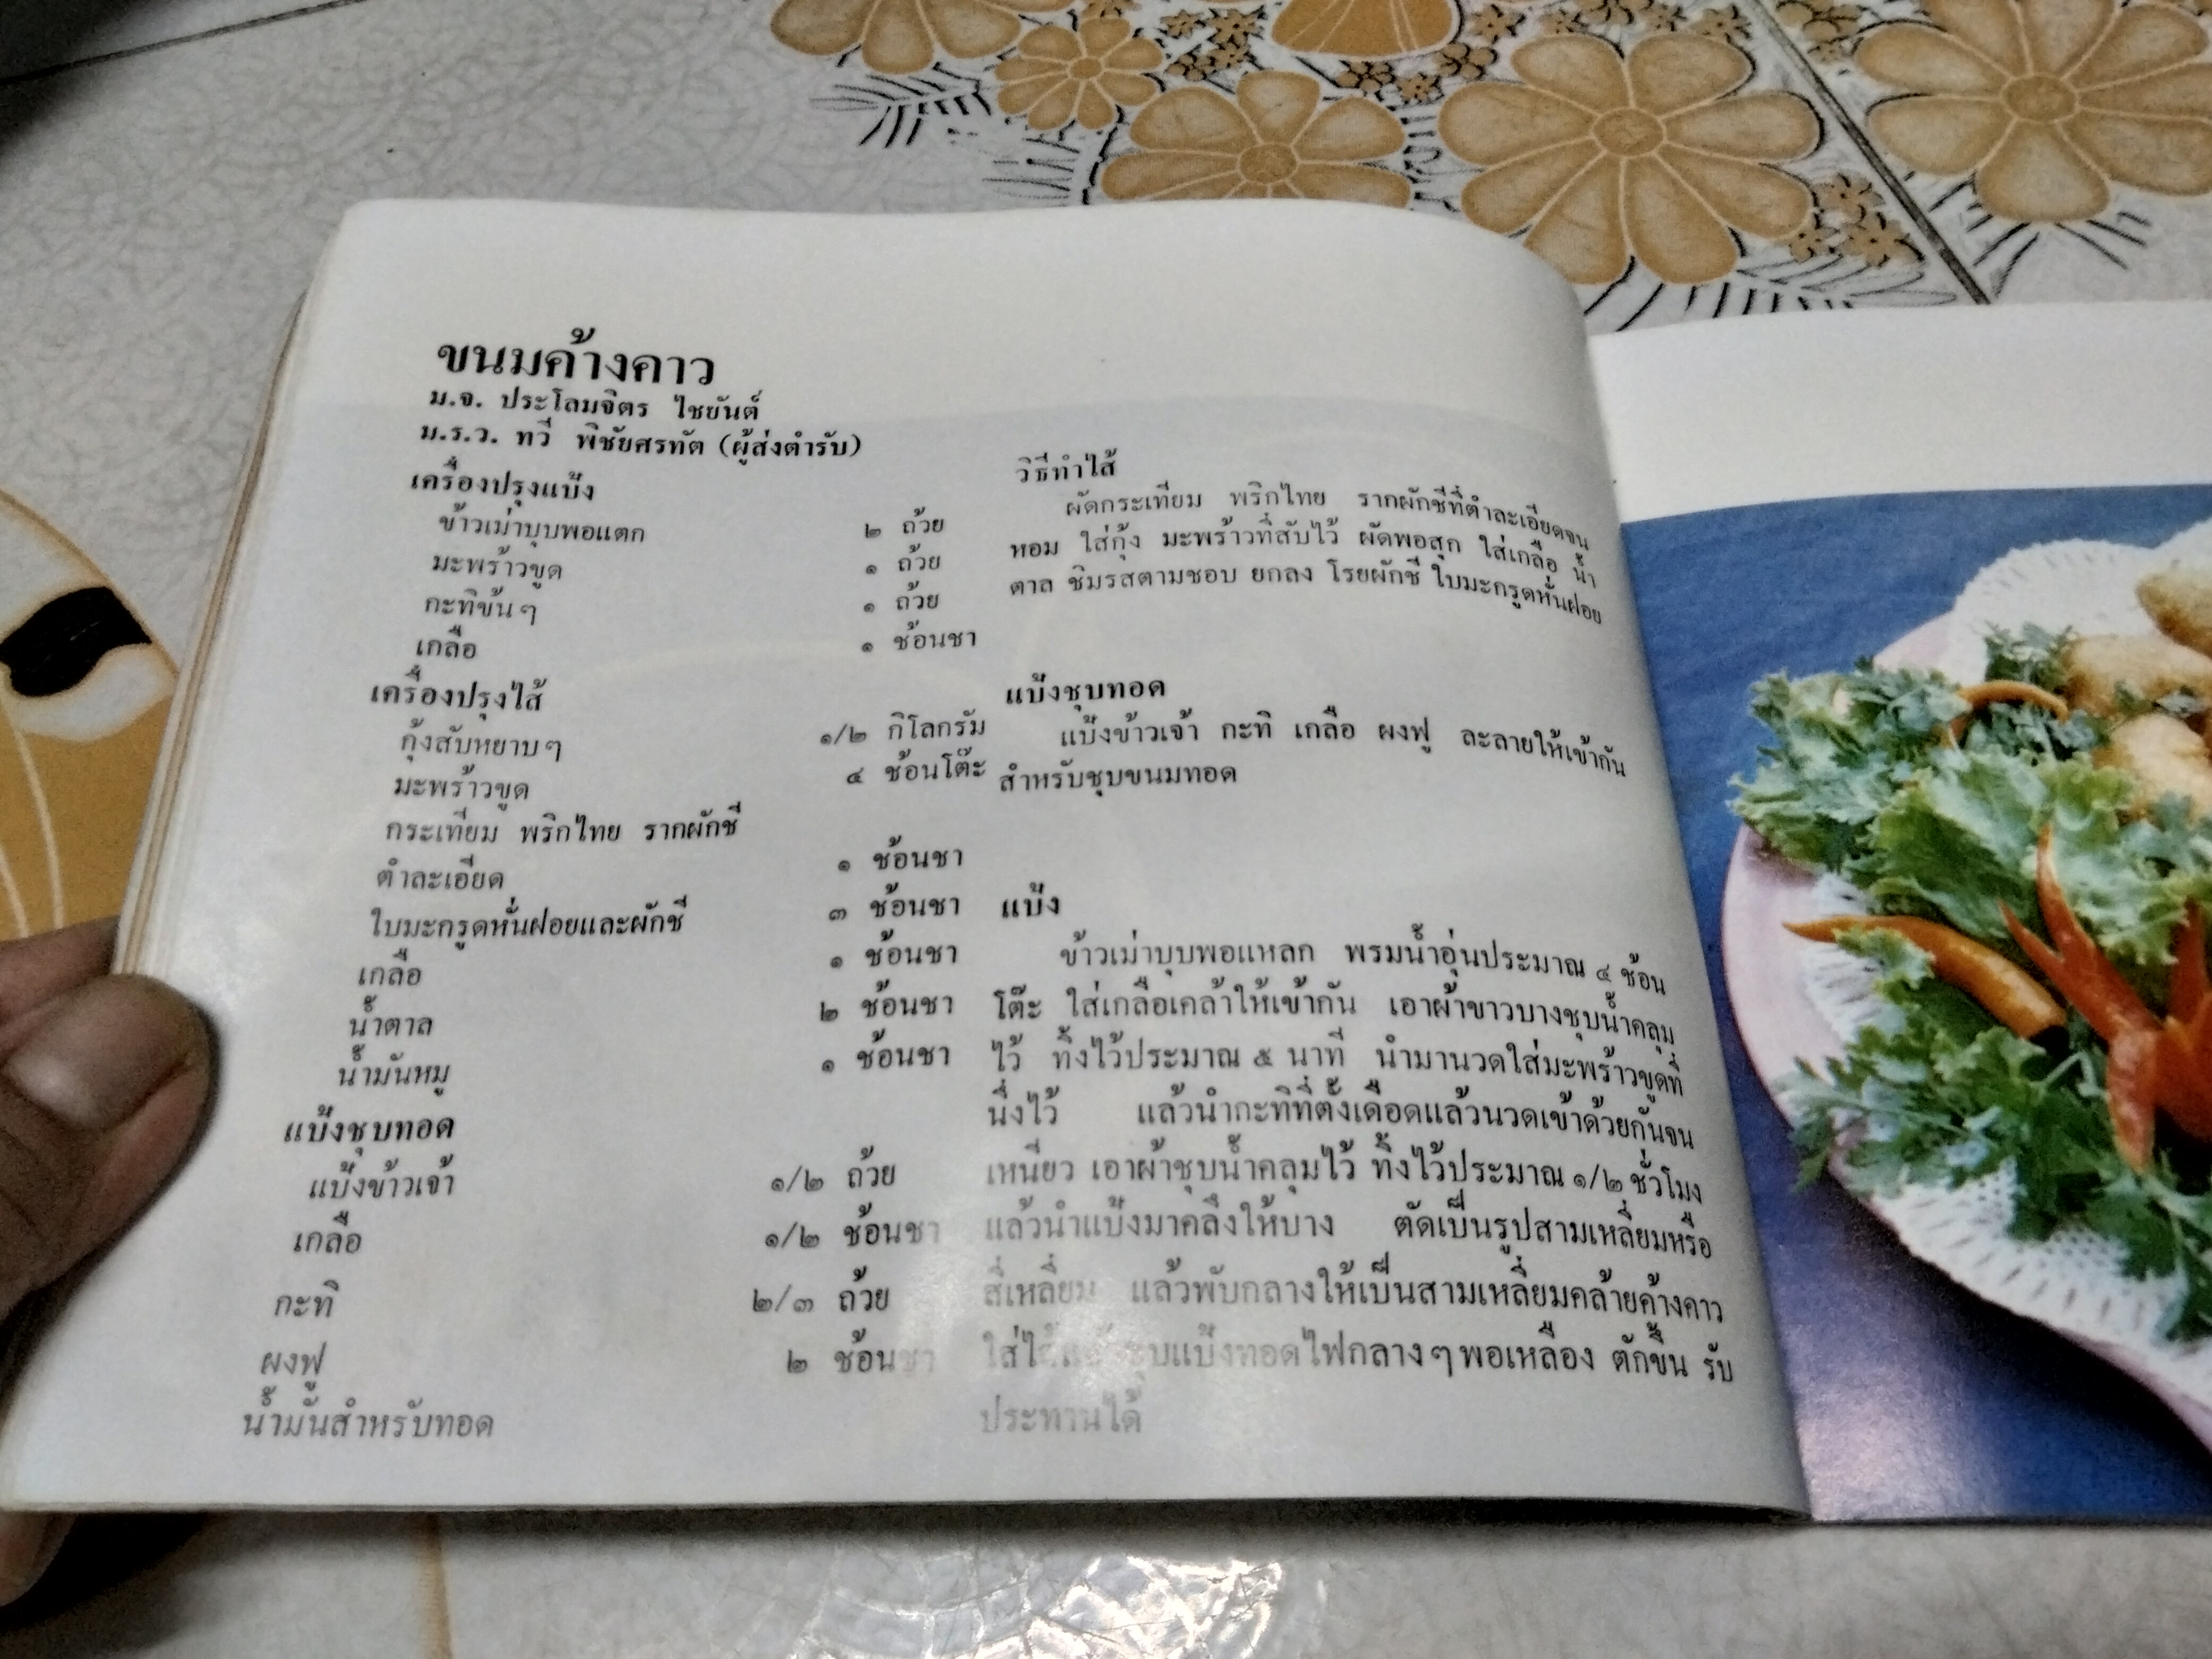 ขนมค้างคาว
ม.จ. ประโลมจิตร ไชยันต์
ม.ร.ว. ทวี พิชัยศรทัต (ผู้ส่งตำรับ)
เครื่องปรุงแป้ง
ข้าวเม่าบุบพอแตก ๒ ถ้วย
มะพร้าวขูด ๑ ถ้วย
กะทิข้นๆ ๑ ถ้วย
เกลือ ๑ ช้อนชา
เครื่องปรุงไส้
กุ้งสับหยาบๆ ๑/๒ กิโลกรัม
มะพร้าวขูด ๔ ช้อนโต๊ะ
กระเทียม พริกไทย รากผักชี
ตำละเอียด ๑ ช้อนชา
ใบมะกรูดหั่นฝอยและผักชี ๓ ช้อนชา
เกลือ ๑ ช้อนชา
น้ำตาล ๒ ช้อนชา
น้ำมันหมู ๑ ช้อนชา
แป้งชุบทอด
แป้งข้าวเจ้า ๑/๒ ถ้วย
เกลือ ๑/๒ ช้อนชา
กะทิ ๒/๓ ถ้วย
ผงฟู ๒ ช้อนชา
น้ำมันสำหรับทอด
วิธีทำไส้
ผัดกระเทียม พริกไทย รากผักชีที่ตำละเอียดจน
หอม ใส่กุ้ง มะพร้าวที่สับไว้ ผัดพอสุก ใส่เกลือ น้ำ
ตาล ชิมรสตามชอบ ยกลง โรยผักชี ใบมะกรูดหั่นฝอย
แป้งชุบทอด
แป้งข้าวเจ้า กะทิ เกลือ ผงฟู ละลายให้เข้ากัน
สำหรับชุบขนมทอด
แป้ง
ข้าวเม่าบุบพอแหลก พรมน้ำอุ่นประมาณ ๔ ช้อน
โต๊ะ ใส่เกลือเคล้าให้เข้ากัน เอาผ้าขาวบางชุบน้ำคลุม
ไว้ ทิ้งไว้ประมาณ ๕ นาที นำมานวดใส่มะพร้าวขูดที่
นึ่งไว้ แล้วนำกะทิที่ตั้งเดือดแล้วนวดเข้าด้วยกันจน
เหนียว เอาผ้าชุบน้ำคลุมไว้ ทิ้งไว้ประมาณ ๑/๒ ชั่วโมง
แล้วนำแป้งมาคลึงให้บาง ตัดเป็นรูปสามเหลี่ยมหรือ
สี่เหลี่ยม แล้วพับกลางให้เป็นสามเหลี่ยมคล้ายค้างคาว
ใส่ไส้แล้วชุบแป้งทอดไฟกลางๆ พอเหลือง ตักขึ้น รับ
ประทานได้